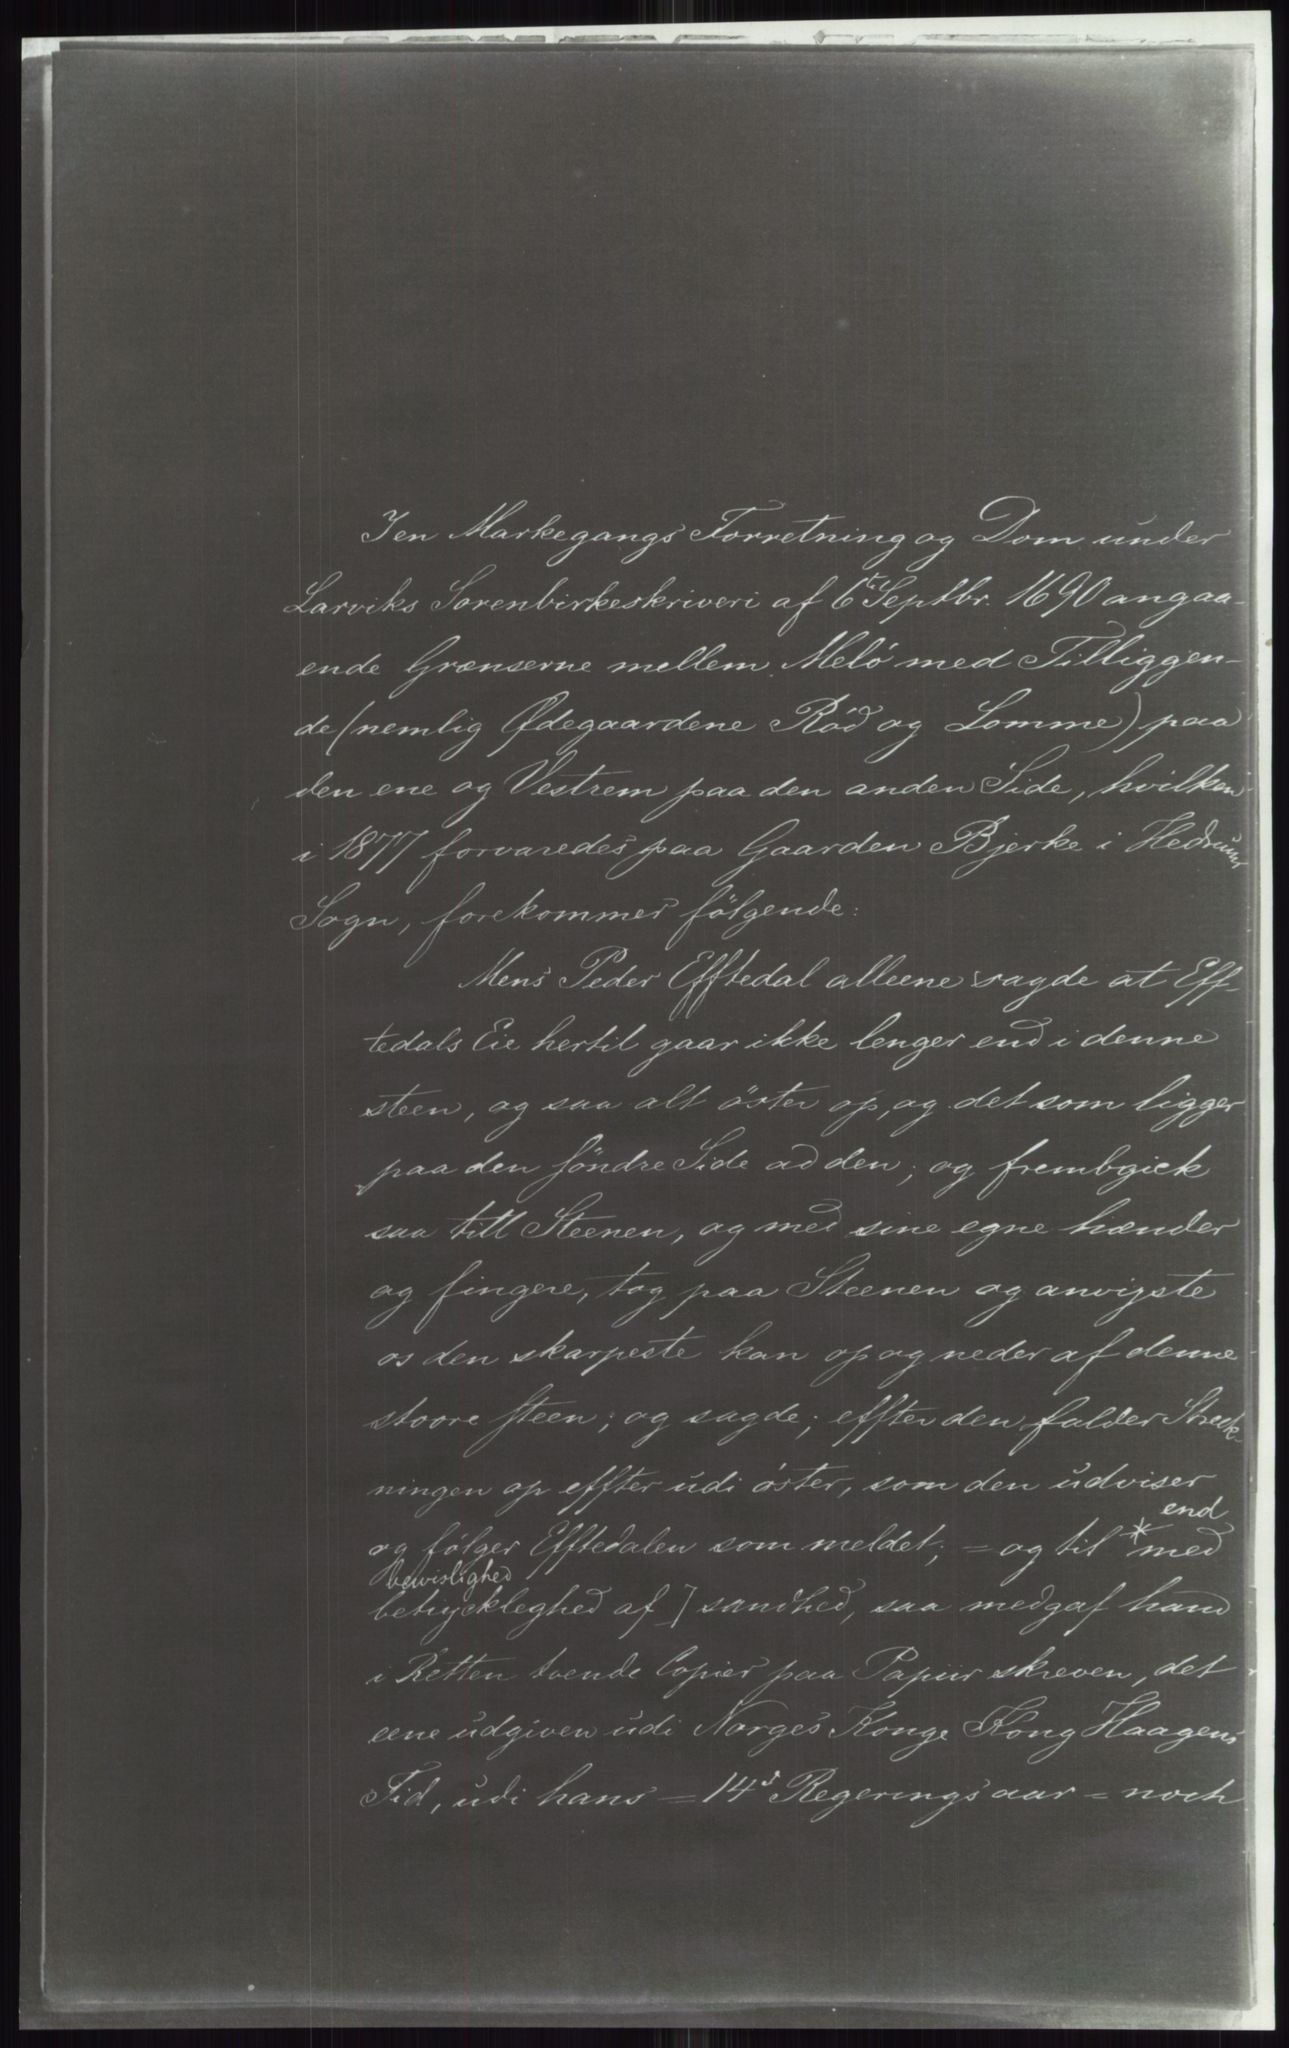 I en Markegangs Forretning og Dom under
Larviks Sorenbirkeskriveri af 6te Septbr. 1690 angaa-
ende Grænserne mellem Melö med Tilliggen-
de (nemlig Ødegaardene Röd og Lomme) paa
den ene og Vestrem paa den anden Side, hvilken
i 1877 forvaredes paa Gaarden Bjerke i Hedrum
Sogn, forekommer fölgende:
Mens Peder Efftedal alleene sagde at Eff-
tedals Eie hertil gaar ikke lenger end i denne
steen, og saa alt öster op, og det som ligger
paa den söndre Side ad den; og frembgick
saa till Steenen, og med sine egne hænder
og fingere, tog paa Steenen og anvigste
os den skarpeste kan op og neder af denne
stoore steen; og sagde; effter den falder Streck-
ningen op effter udi öster, som den udviser
og fölger Efftedalen som meldet; = og til * end med
bevislighed
betryckleghed af] sandhed, saa medgaf hand
i Retten tvende Copier paa Papiir skreven, det
eene udgiven udi Norges Konge Kong Haagens
Tid, udi hans = 14d Regerings aar = noch